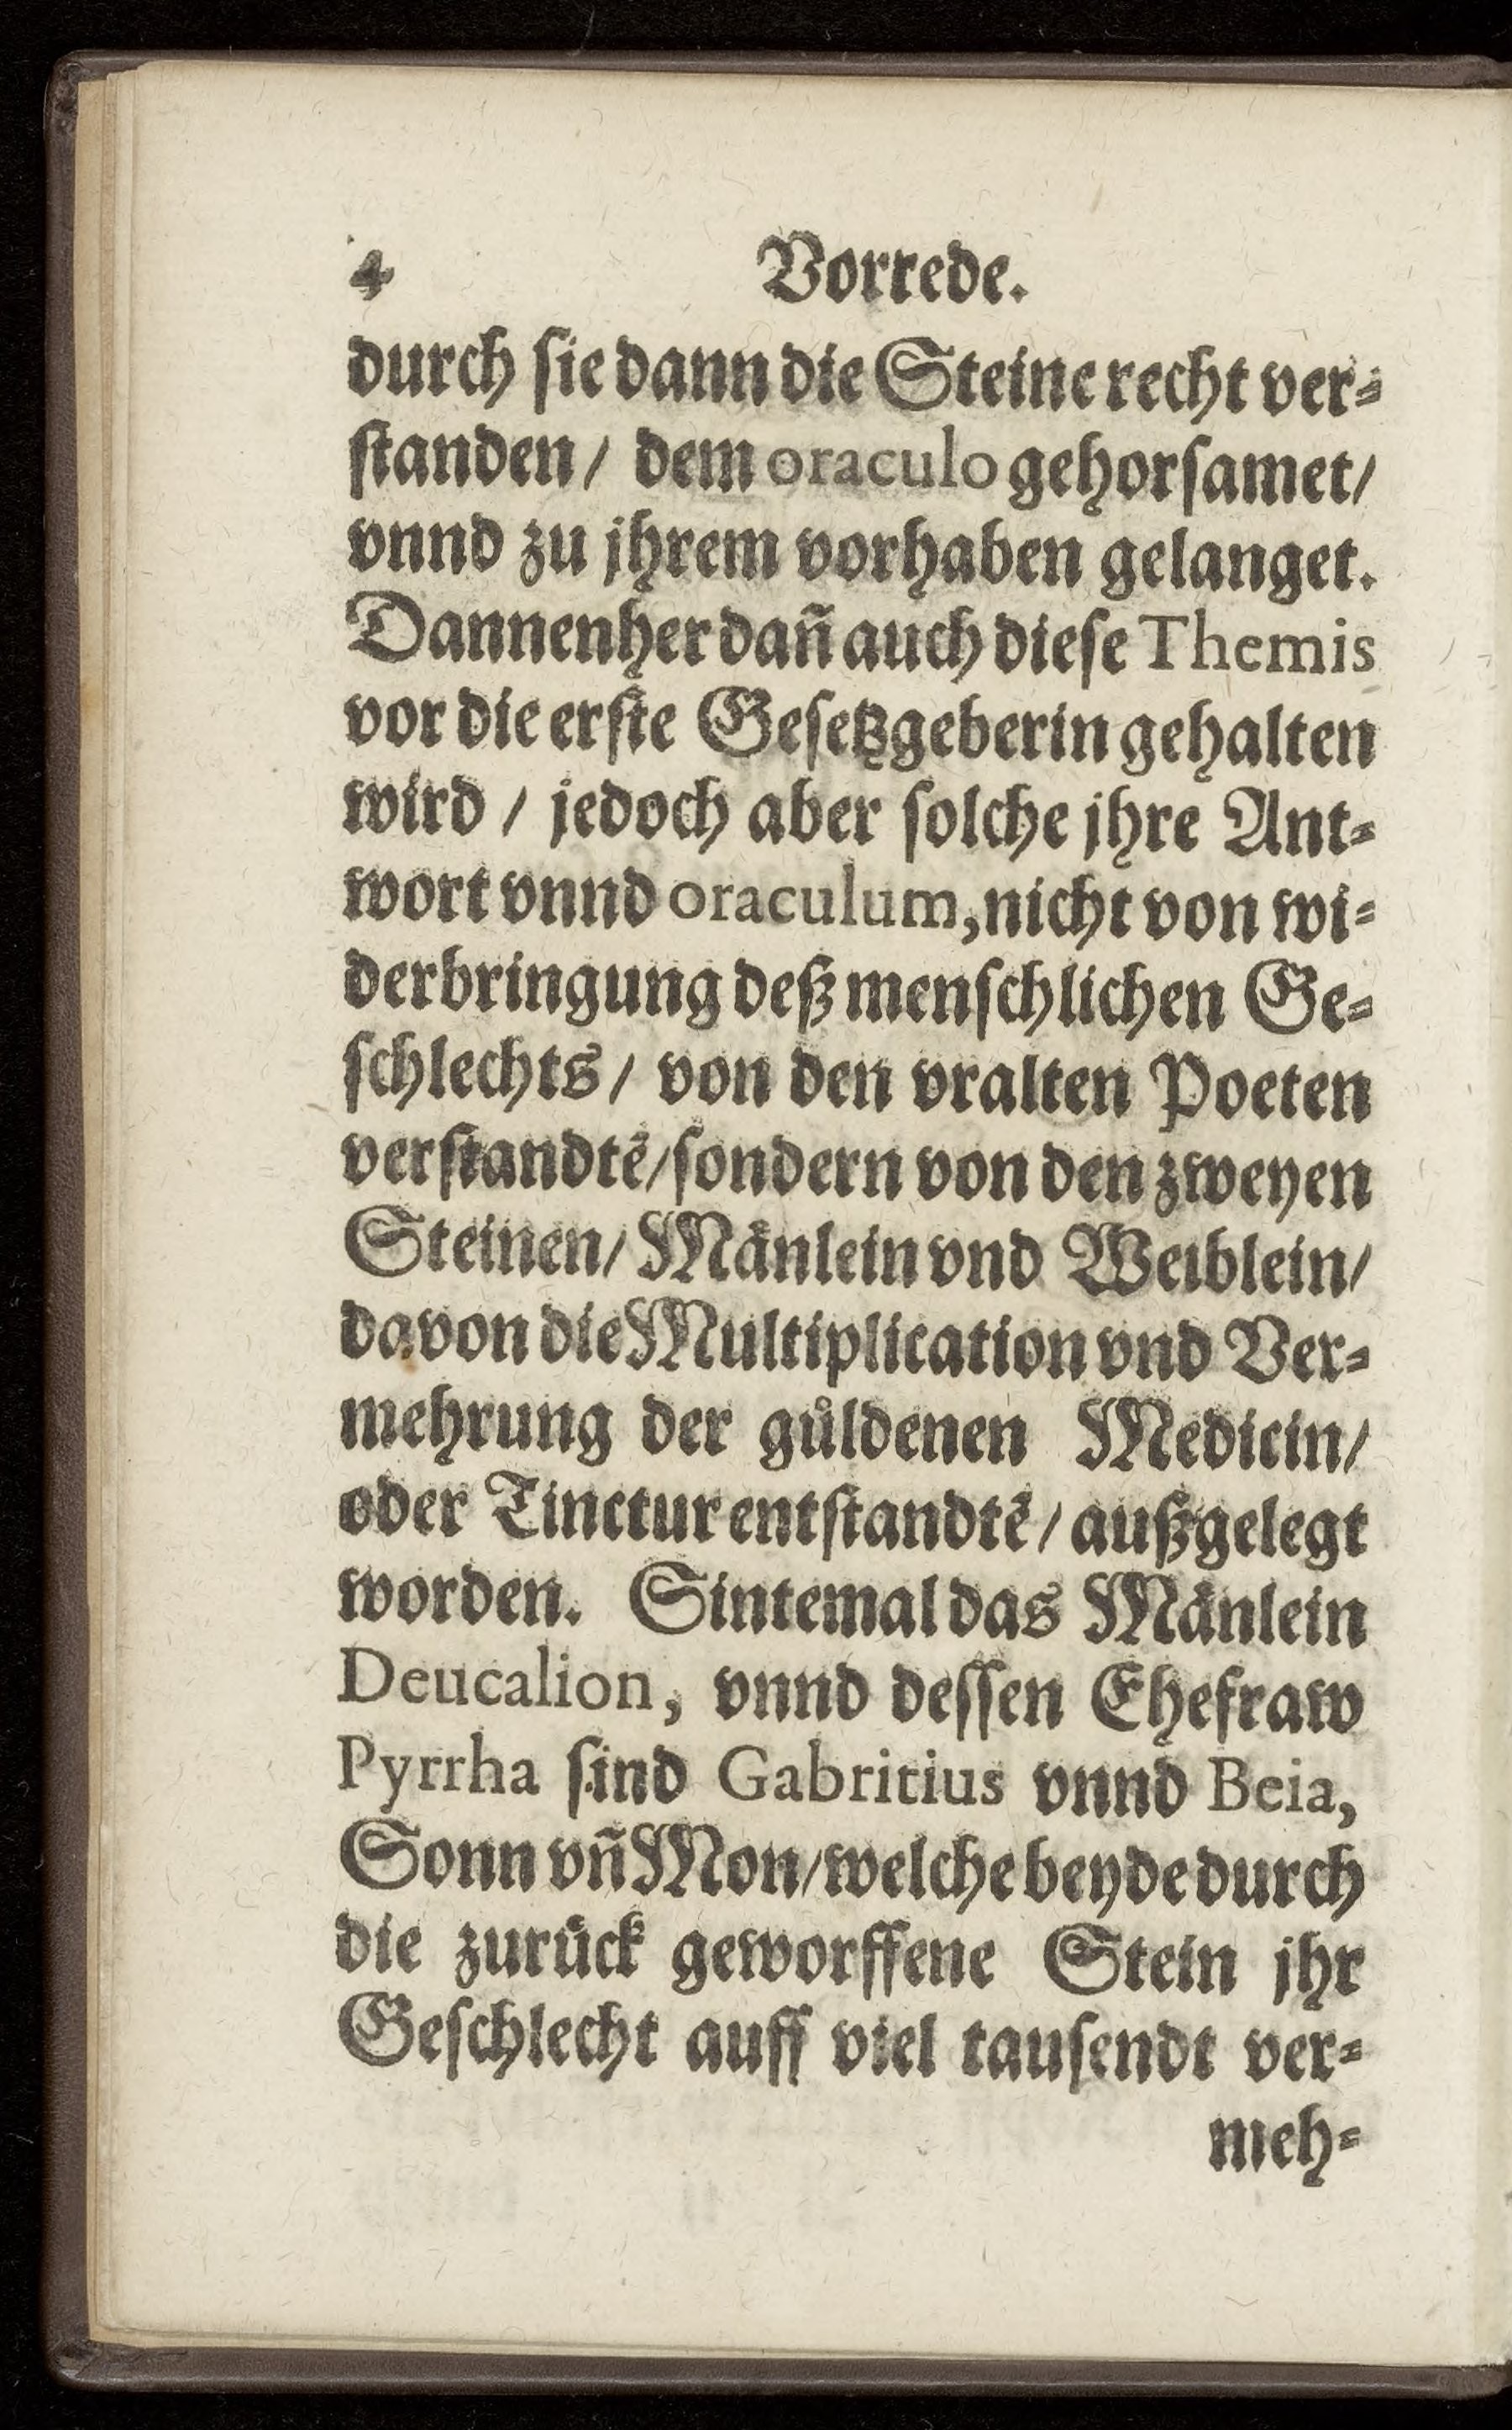 4 Vorrede.
durch ſie dann die Steine recht ver⸗
ſtanden / dem oraculo gehorſamet /
vnnd zu jhrem vorhaben gelanget.
Dannenher dañ auch dieſe Themis
vor die erſte Geſetzgeberin gehalten
wird / jedoch aber ſolche jhre Ant⸗
wort vnnd oraculum, nicht von wi⸗
derbringung deß menſchlichen Ge⸗
ſchlechts / von den vralten Poeten
verſtandtẽ / ſondern von den zweyen
Steinen / Mänlein vnd Weiblein /
davon die Multiplication vnd Ver⸗
mehrung der güldenen Medicin /
oder Tinctur entſtandtẽ / außgelegt
worden. Sintemal das Mänlein
Deucalion, vnnd deſſen Ehefraw
Pyrrha ſind Gabritius vnnd Beia,
Sonn vñ Mon / welche beyde durch
die zurück geworffene Stein jhr
Geſchlecht auff viel tauſendt ver⸗
meh⸗